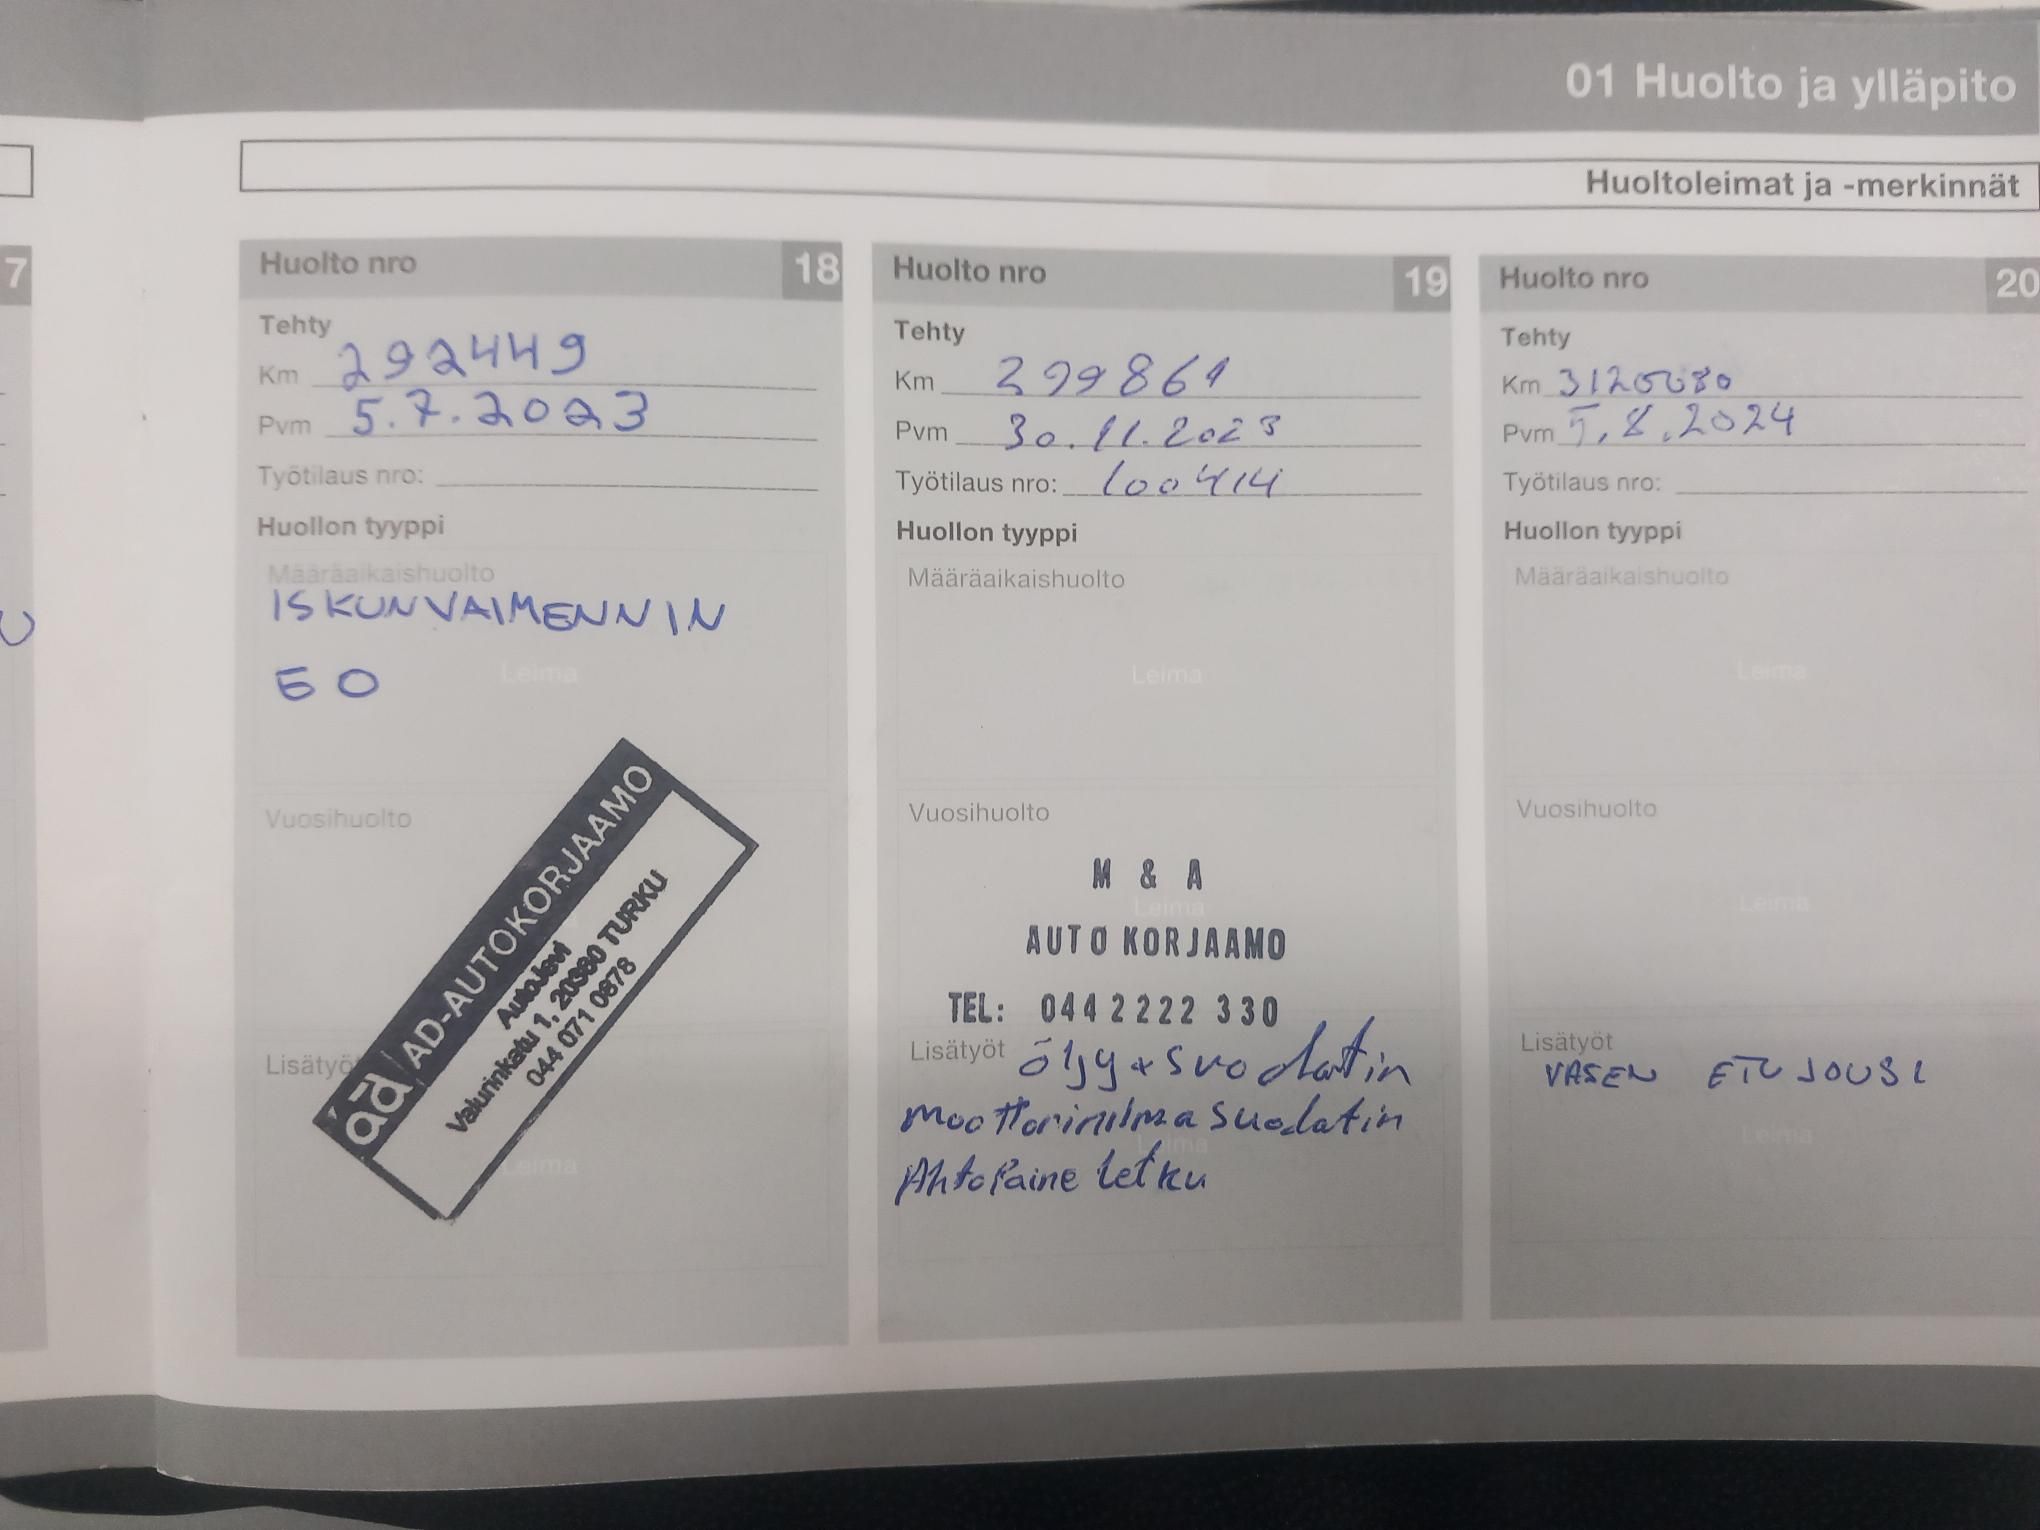 01 Huolto ja ylläpito
Huoltoleimat ja -merkinnät
7
Huolto nro 18
Tehty
Km 292449
Pvm 5.7.2023
Työtilaus nro:
Huollon tyyppi
Määräaikaishuolto
ISKUNVAIMENNIN
EO
Leima
Vuosihuolto
ad AD-AUTOKORJAAMO
AutoJevi
Valurinkatu 1, 20380 TURKU
044 071 0878
Lisätyöt
Leima
Huolto nro 19
Tehty
Km 299861
Pvm 30.11.2023
Työtilaus nro: 100414
Huollon tyyppi
Määräaikaishuolto
Leima
Vuosihuolto
M & A
Leima
AUTO KORJAAMO
TEL: 044 2222 330
Lisätyöt öljy + suodatin
moottorinilmasuodatin
Leima
Ahtopaine letku
Huolto nro 20
Tehty
Km
Pvm 5.8.2024
Työtilaus nro:
Huollon tyyppi
Määräaikaishuolto
Leima
Vuosihuolto
Leima
Lisätyöt
VASEN ETUJOUSI
Leima